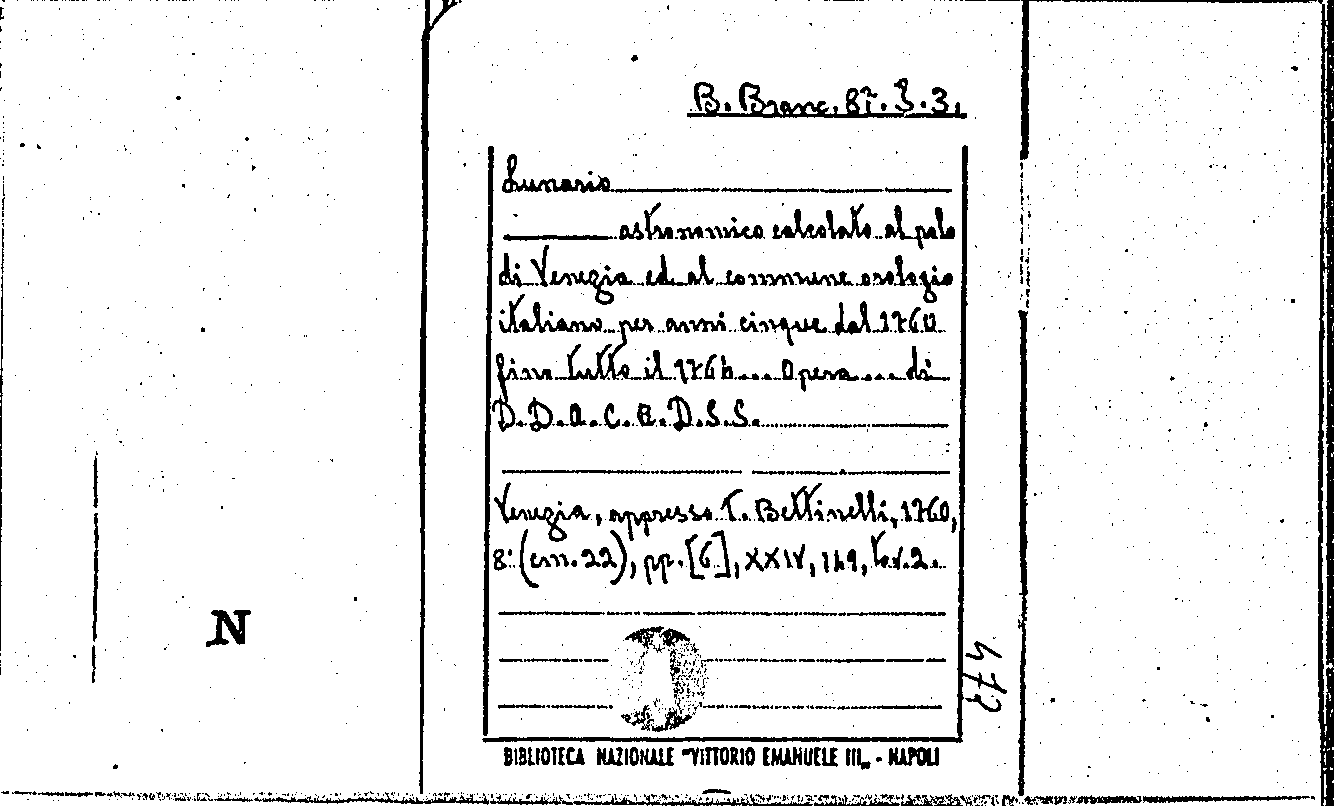 B. Branc. 87. 3. 3.
Lunario
astronomico calcolato al polo
di Venezia ed al commune orologio
italiano per anni cinque dal 1760
fino tutto il 1764... Opera... di
D. D. A. C. E. D. S. S.
Venezia, appresso T. Bettinelli, 1760,
8° (cm. 22), pp. [6], XXIV, 149, tav. 2.
N
477
BIBLIOTECA NAZIONALE "VITTORIO EMANUELE III„ - NAPOLI